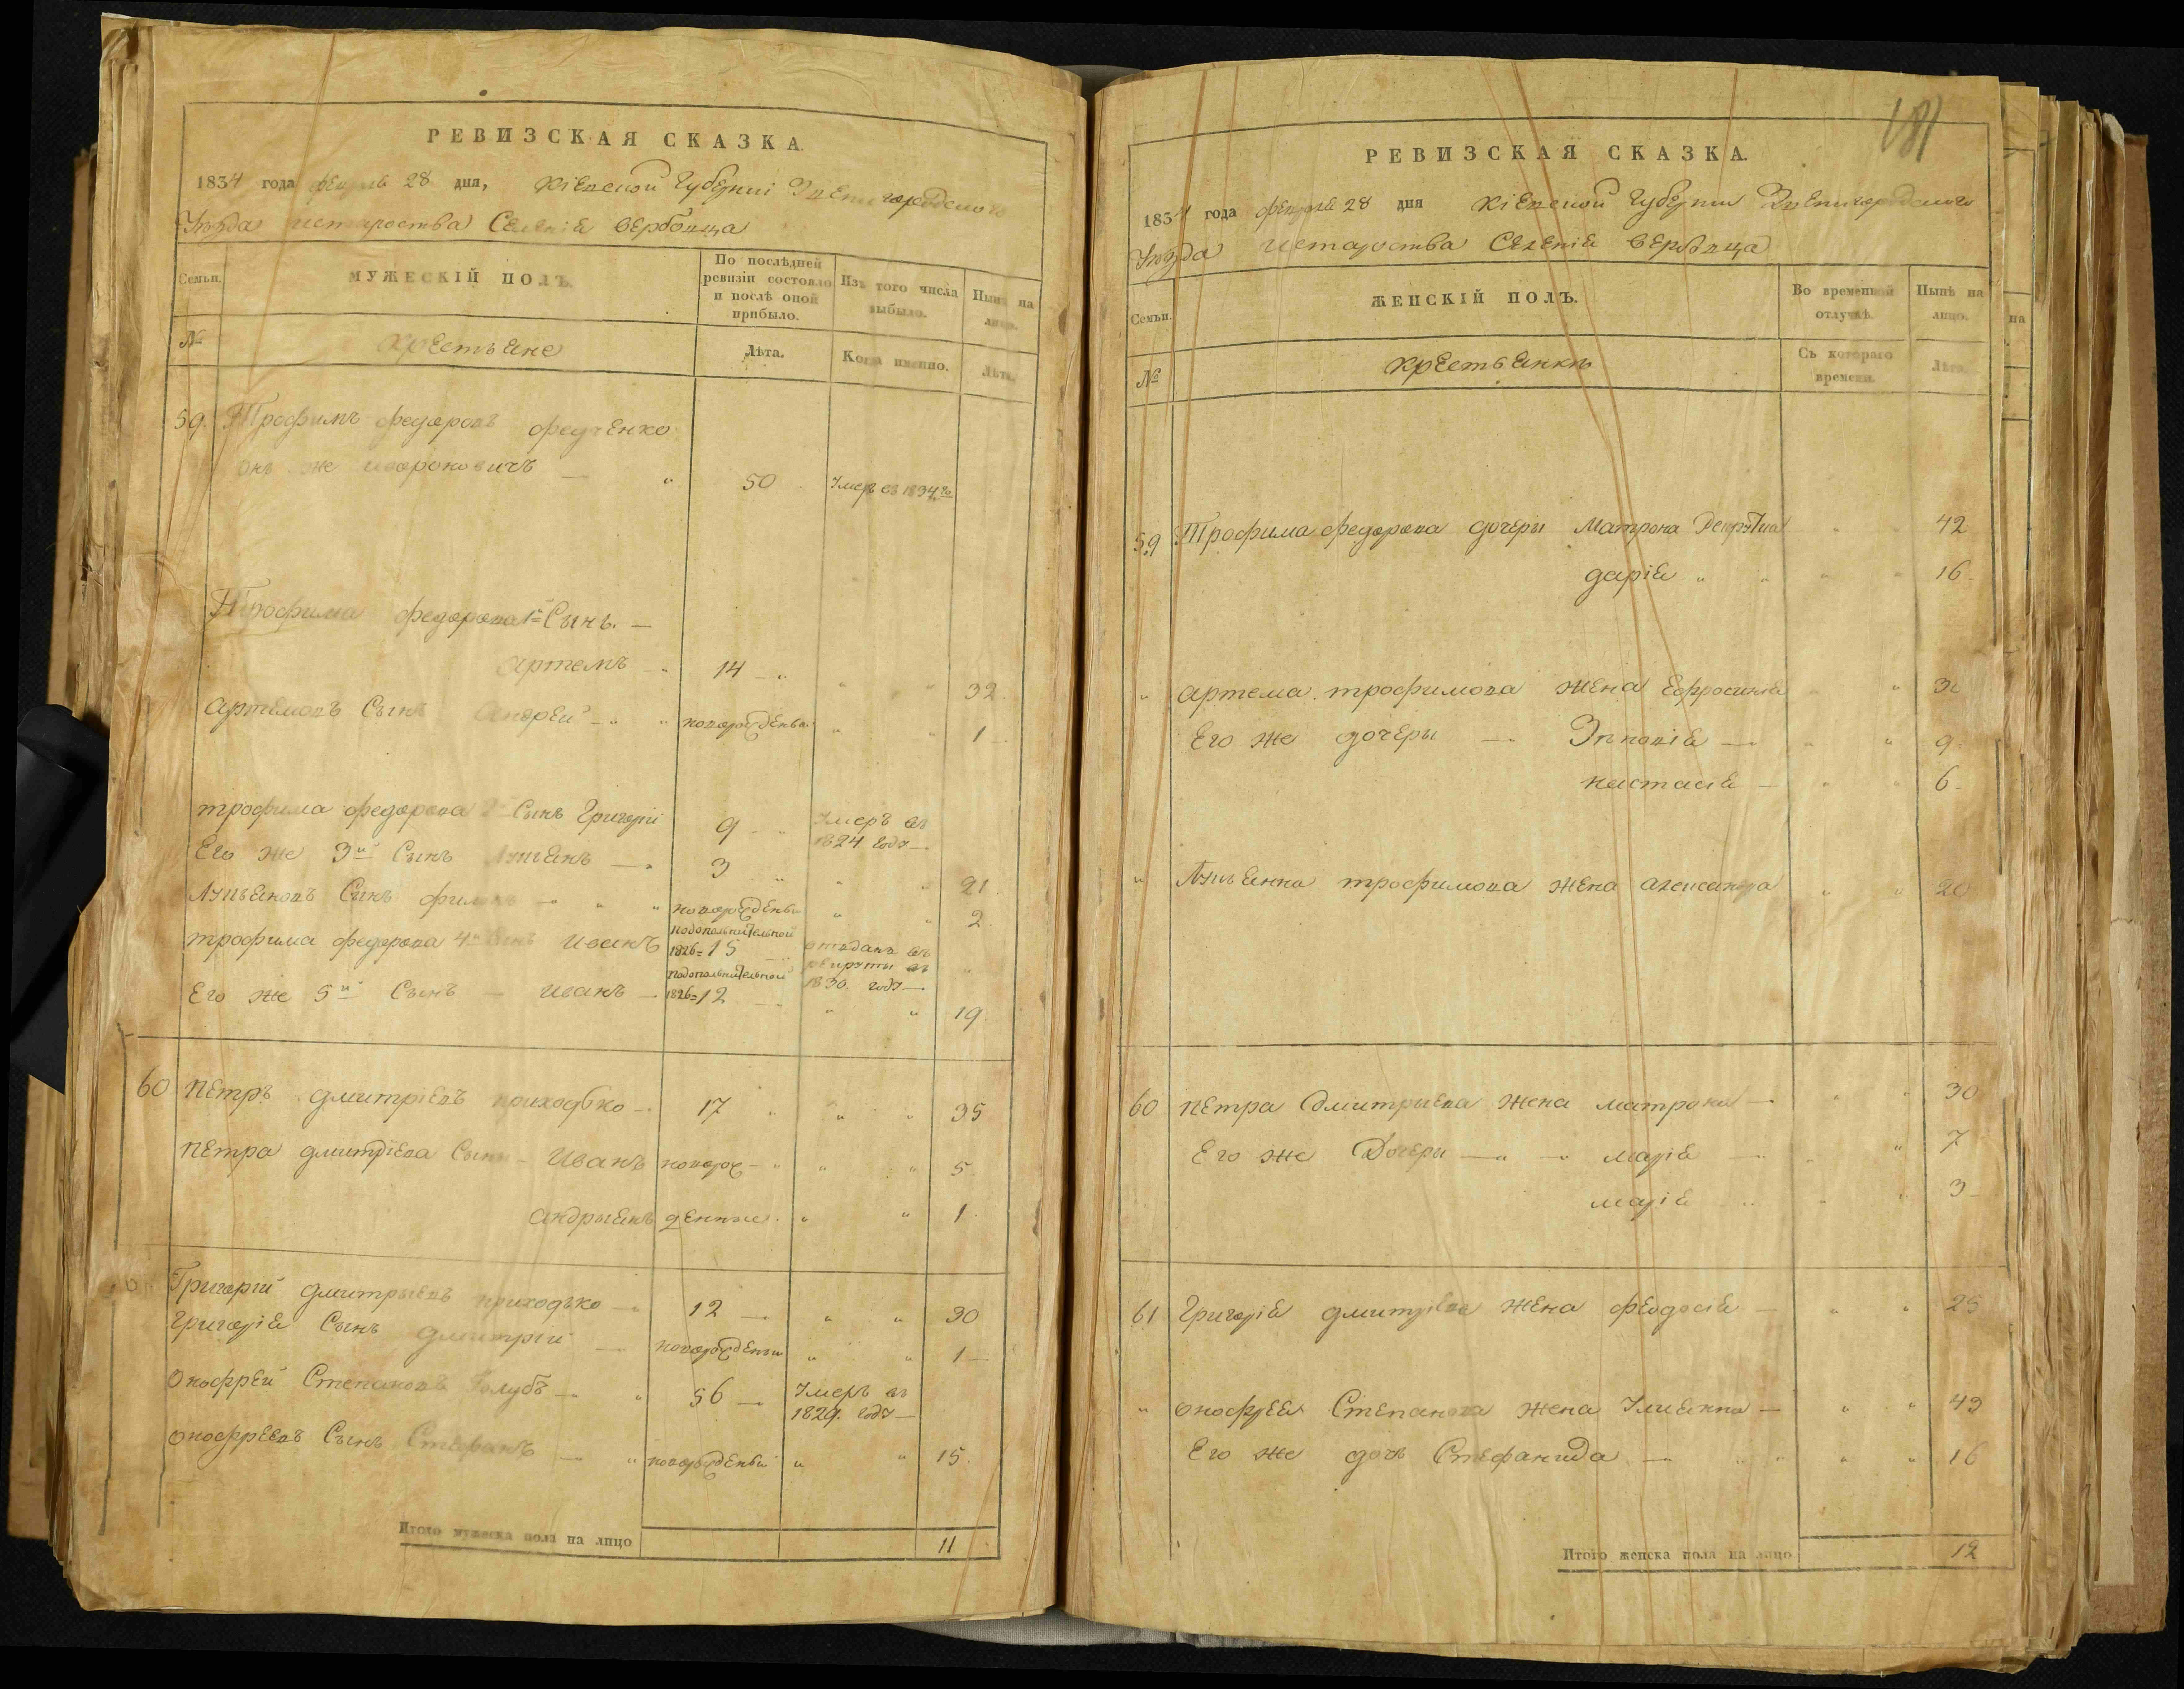 РЕВИЗСКАЯ СКАЗКА.
1834 года февраля 28 дня, Кіевской Губерніи Звенигородскаго
Уѣзда староства Селенія Вербовца
Семьи.
МУЖЕСКІЙ ПОЛЪ.
По послѣдней ревизіи состояло и послѣ оной прибыло.
Изъ того числа выбыло.
Нынѣ на лицо.
№
Крестьяне
Лѣта.
Когда именно.
Лѣта.
59. Трофимъ федоровъ федченко
онъ же 50 Умеръ въ 1834
Трофима федорова 1й Сынъ. —
артемъ 14 " " 32.
артемовъ Сынъ андрей новорожденъ " " 1
трофима федорова 2й Сынъ Григорій 9 Умеръ въ 1824 году
Его же 3й Сынъ Лукьянъ 3 " " 21.
Лукьяновъ Сынъ новорожденъ " " 2
трофима федорова 4й Сынъ иванъ подополнительной 1826=15 отъданъ въ рекруты въ 1830 году
Его же 5й Сынъ — иванъ подополнительной 1826=12 " " 19.
60 петръ дмитріевъ приходько 17 " " 35
петра дмитріева Сынъ — иванъ новорож- " " 5
андриянъ денные. " " 1
Григорій дмитрыевъ приходько 12 " " 30
григорія Сынъ дмитрій новорожденъи " " 1
онофрей Степановъ Голубъ 56 Умеръ въ 1829. году
онофреевъ Сынъ Стефанъ новорожденъи " " 15.
Итого мужеска пола на лицо 11
181
РЕВИЗСКАЯ СКАЗКА.
1834 года февраля 28 дня Кіевской Губерніи Звенигородскаго
Уѣзда староства Селенія Вербовца
Семьи.
ЖЕНСКІЙ ПОЛЪ.
Во временной отлучкѣ.
Нынѣ на лицо.
№
Крестьянкъ
Съ котораго времени.
Лѣта.
59 Трофима федорова дочери Матрона 42
дарія " " " " 16
" артема трофимова жена Ефросинія "
Его же дочеры — — " " 9
настасія — " " 6
" Лукьянна трофимова жена александра " " 20
60 петра Дмитриева жена матрона — " " 30
Его же Дочеры — марія " " 7
марія " " 3
61 Григорія дмитріева жена феодосія — " " 25
" онофрея Степанова жена Улиянна — " " 43
Его же дочь Стефанида — " " 16
Итого женска пола на лицо 12